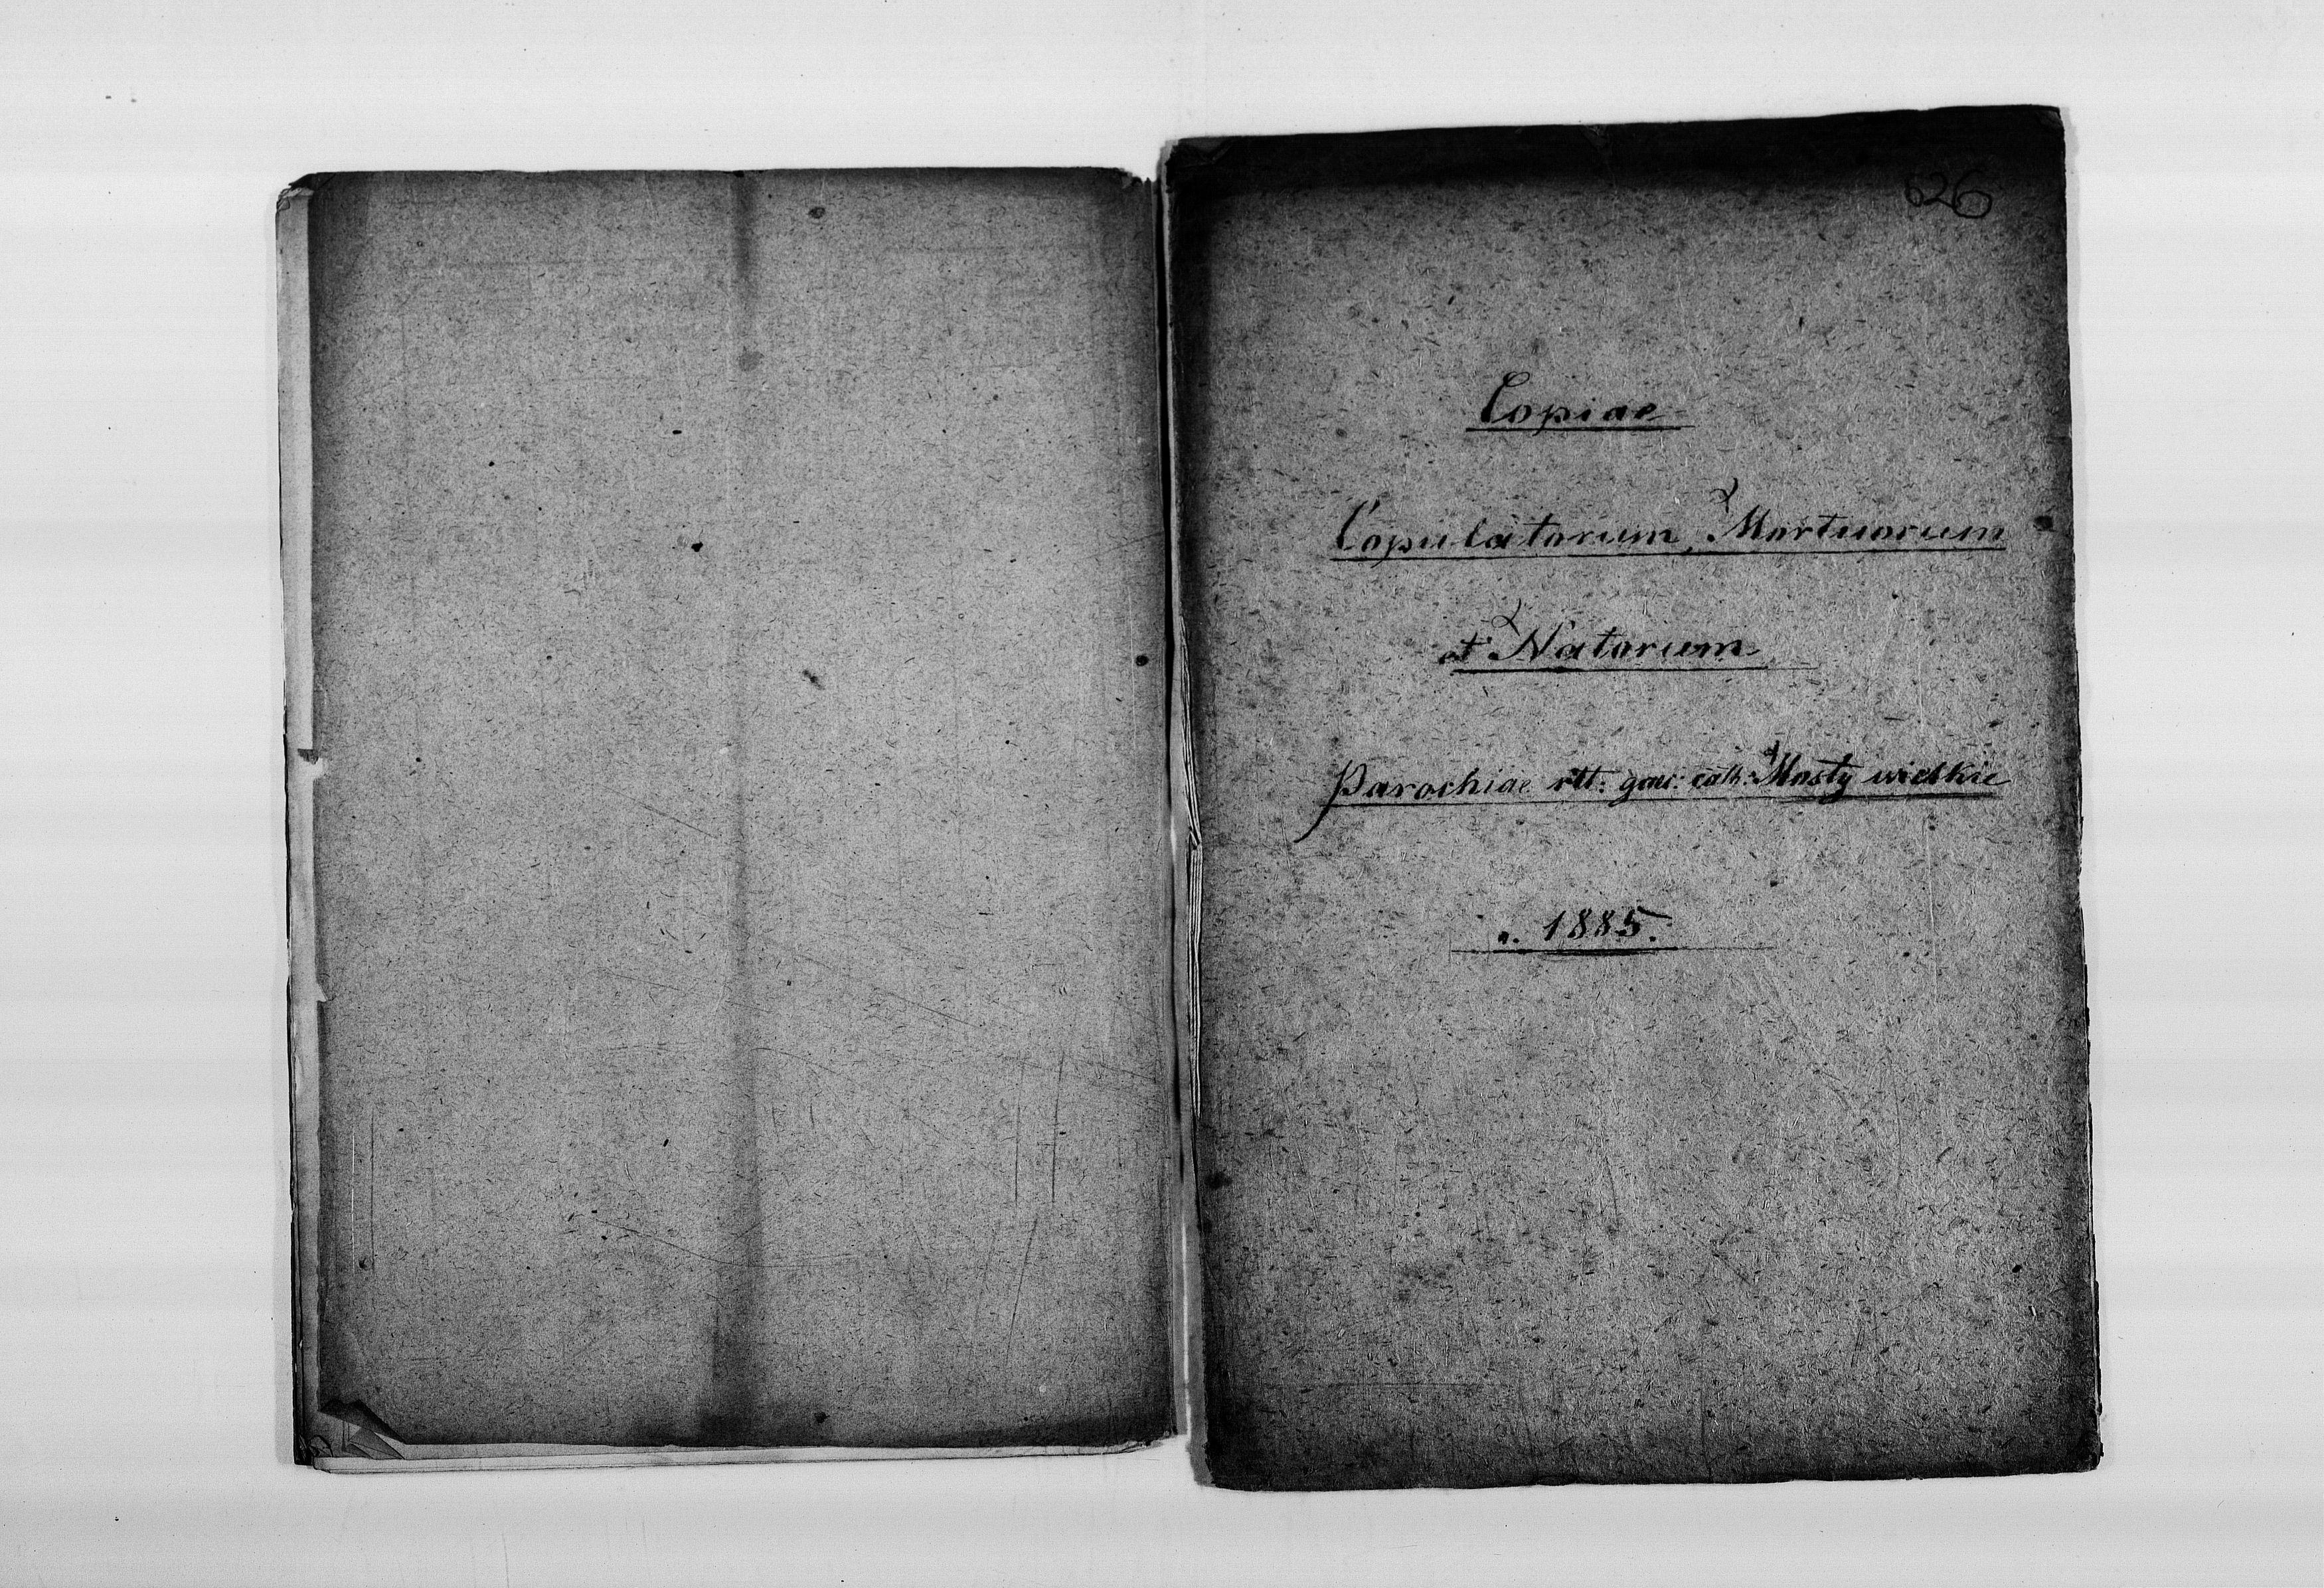 626
Copiae
Copulatorum, Mortuorum
et Natorum
Parochiae rit: graec: cath: Mosty wielkie
a. 1885.